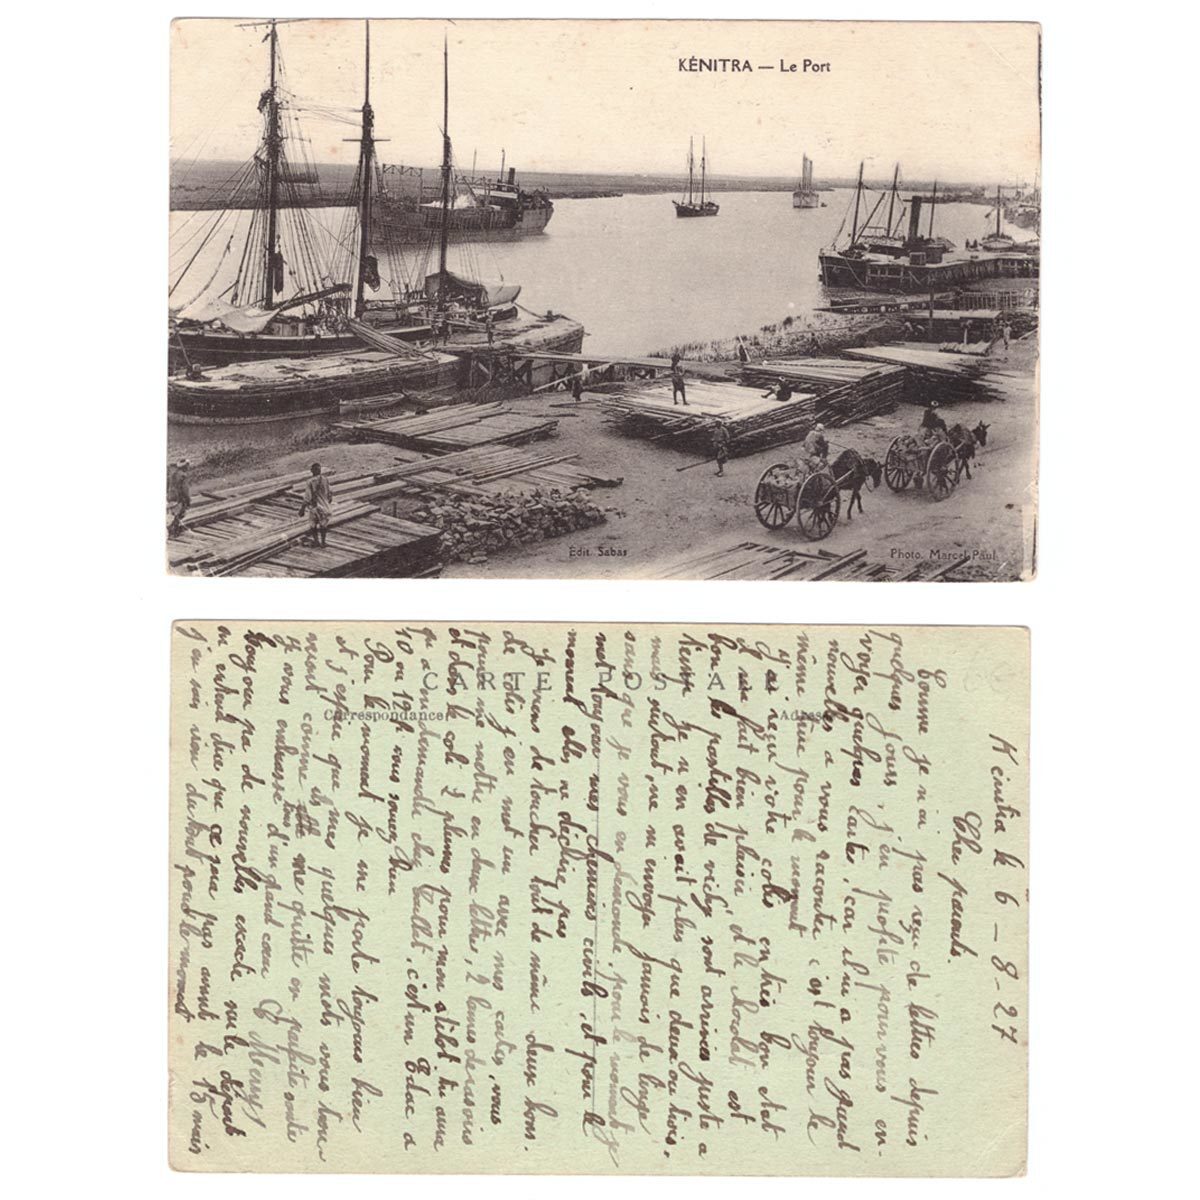 KÉNITRA — Le Port
Edit. Sabas
Photo. Marcel Paul
CARTE POSTALE
Correspondance
Adresse
Kenitra le 6-8-27
Cher parents.
Comme je n'ai pas reçu de lettres depuis
quelques jours, j'en profite pour vous en-
voyer quelques cartes, car il n'y a pas grand
nouvelles a vous raconter c'est toujour le
même pour le moment
J'ai reçu votre colis en très bon etat
il m'a fait bien plaisir, et le chocolat est
bon les pastilles de vichy sont arrivées juste a
temps je n'en avait plus que deux ou trois,
mais surtout, ne m'envoyer jamais de linge
sans que je vous en demande, pour le moment je
met toujours mes chemises civils, et pour le
moment elle ne déchire pas
Je viens de toucher tout de même deux bons.
de colis j'en met un avec mes cartes, vous
pourrez me mettre en deux lettres, 2 lames de rasoirs
et dans le colis 2 plumes pour mon stilot tu aura
qu'a en demandé chez c'est un Edac a
10 ou 12f vous savez bien
Pour le moment je me porte toujours bien
et j'espère que mes quelques mots vous trou
veront comme ils me quitte en parfaite santé
Je vous embrasse tous d'un grand cœur
toujour pas de nouvelle exacte sur le départ
on entend dire que ce sera pas avant le 15 mais
j'en sais rien du tout pour le moment